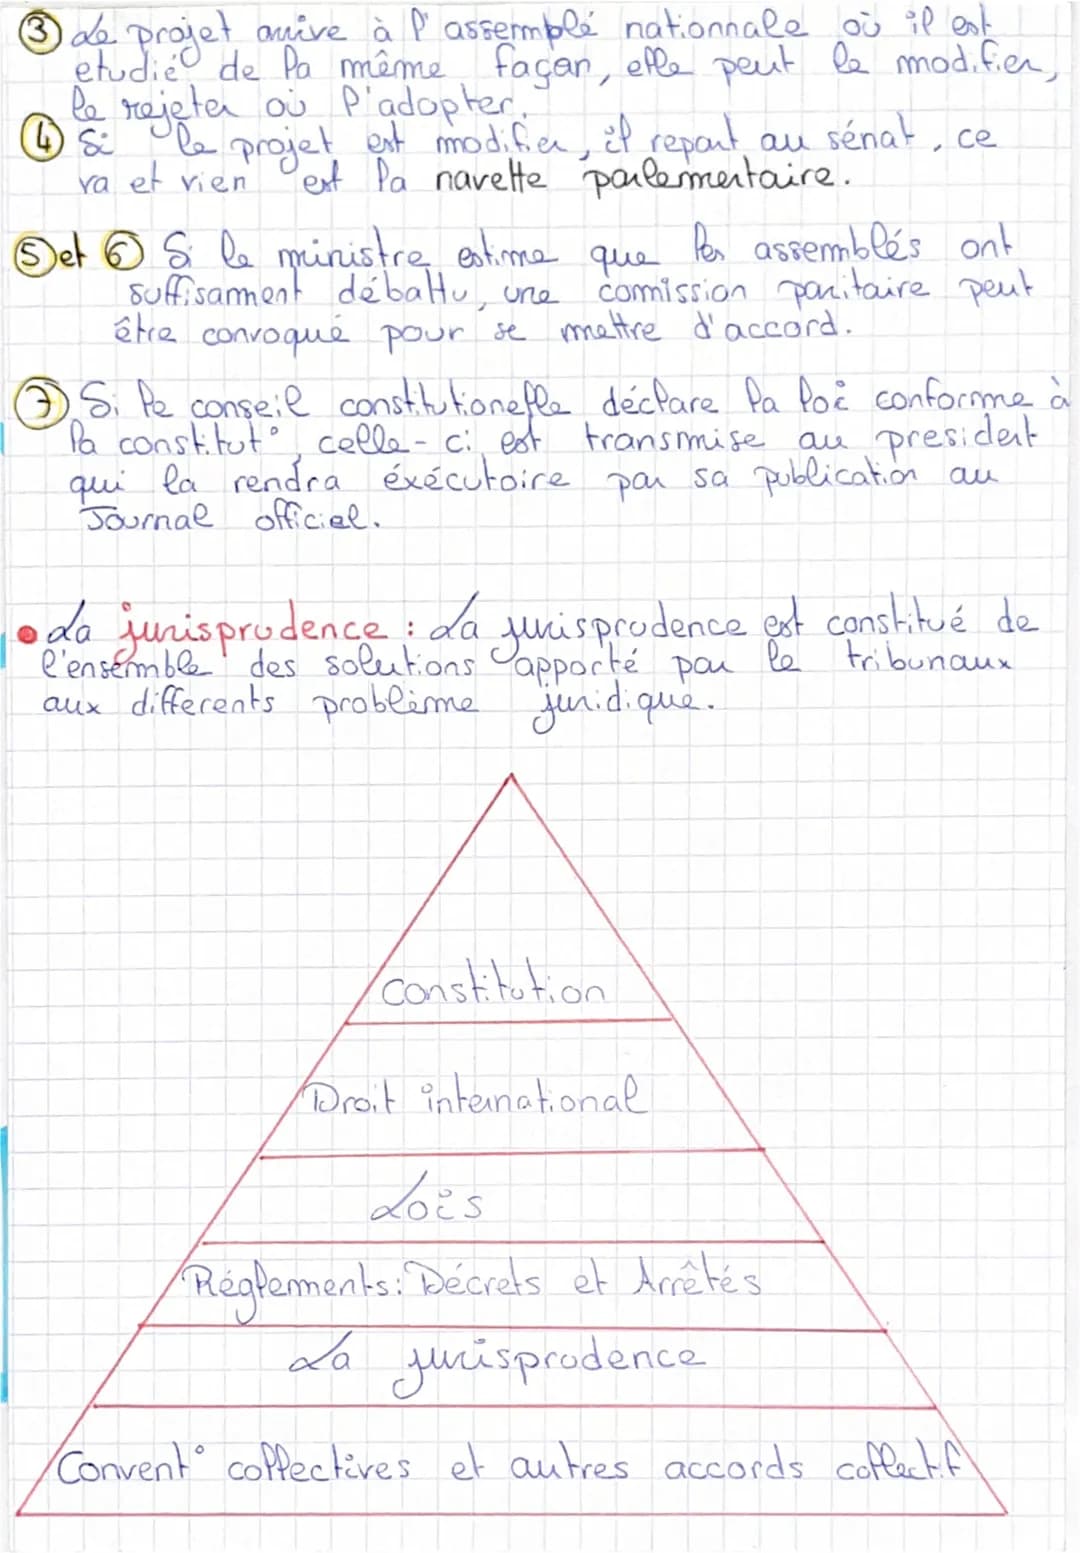 ③ Le projet arrive à l'assemmblé nationnale où il est
etudié de la même façan, elle peut le modifier,
le rejeter où l'adopter.
④ Si le projet est modifier, il repart au sénat, ce
va et vien est la navette parlementaire.
⑤ et ⑥ Si le ministre estime que les assemblés ont
suffisamment débattu, une comission paritaire peut
être convoqué pour se mettre d'accord.
⑦ Si le conseil constitutionelle déclare la loi conforme à
la constitut° celle-ci est transmise au president
qui la rendra éxécutoire par sa publication au
Journal officiel.
• La jurisprudence : La jurisprudence est constitué de
l'ensemble des solutions apporté par le tribunaux
aux differents problème juridique.
Constitution
Droit international
Lois
Réglements: Décrets et Arrêtés
La jurisprudence
Convent° collectives et autres accords collectif